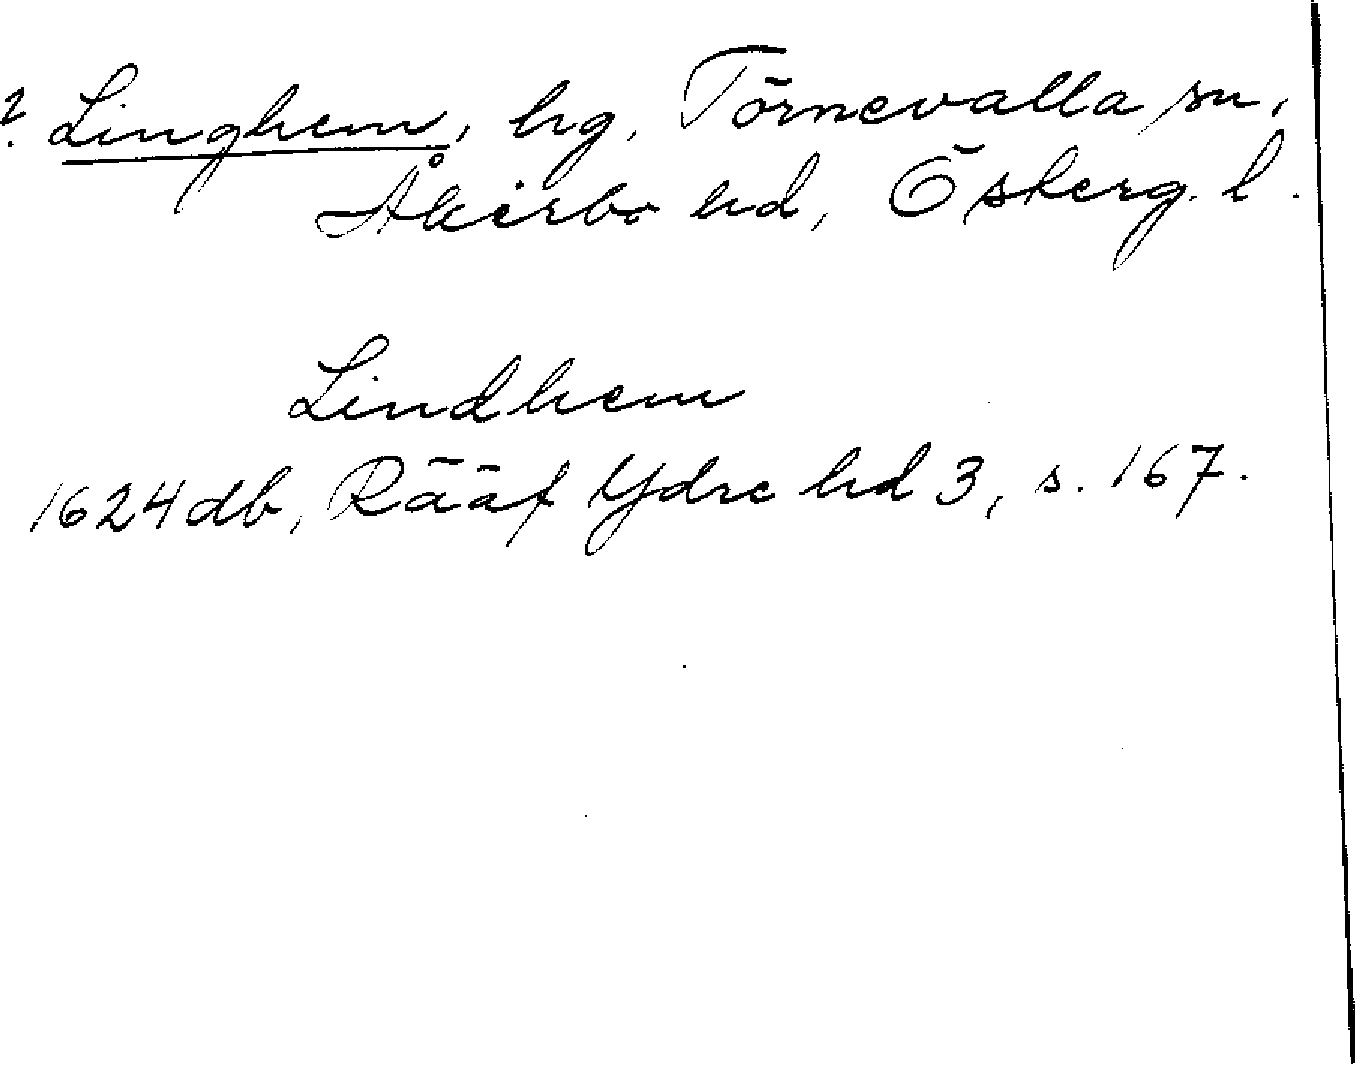 ? Linghem, hg, Törnevalla sn,
Åkerbo hd, Österg. l.
Lindhem
1624 db, Rääf Ydre hd 3, s. 167.